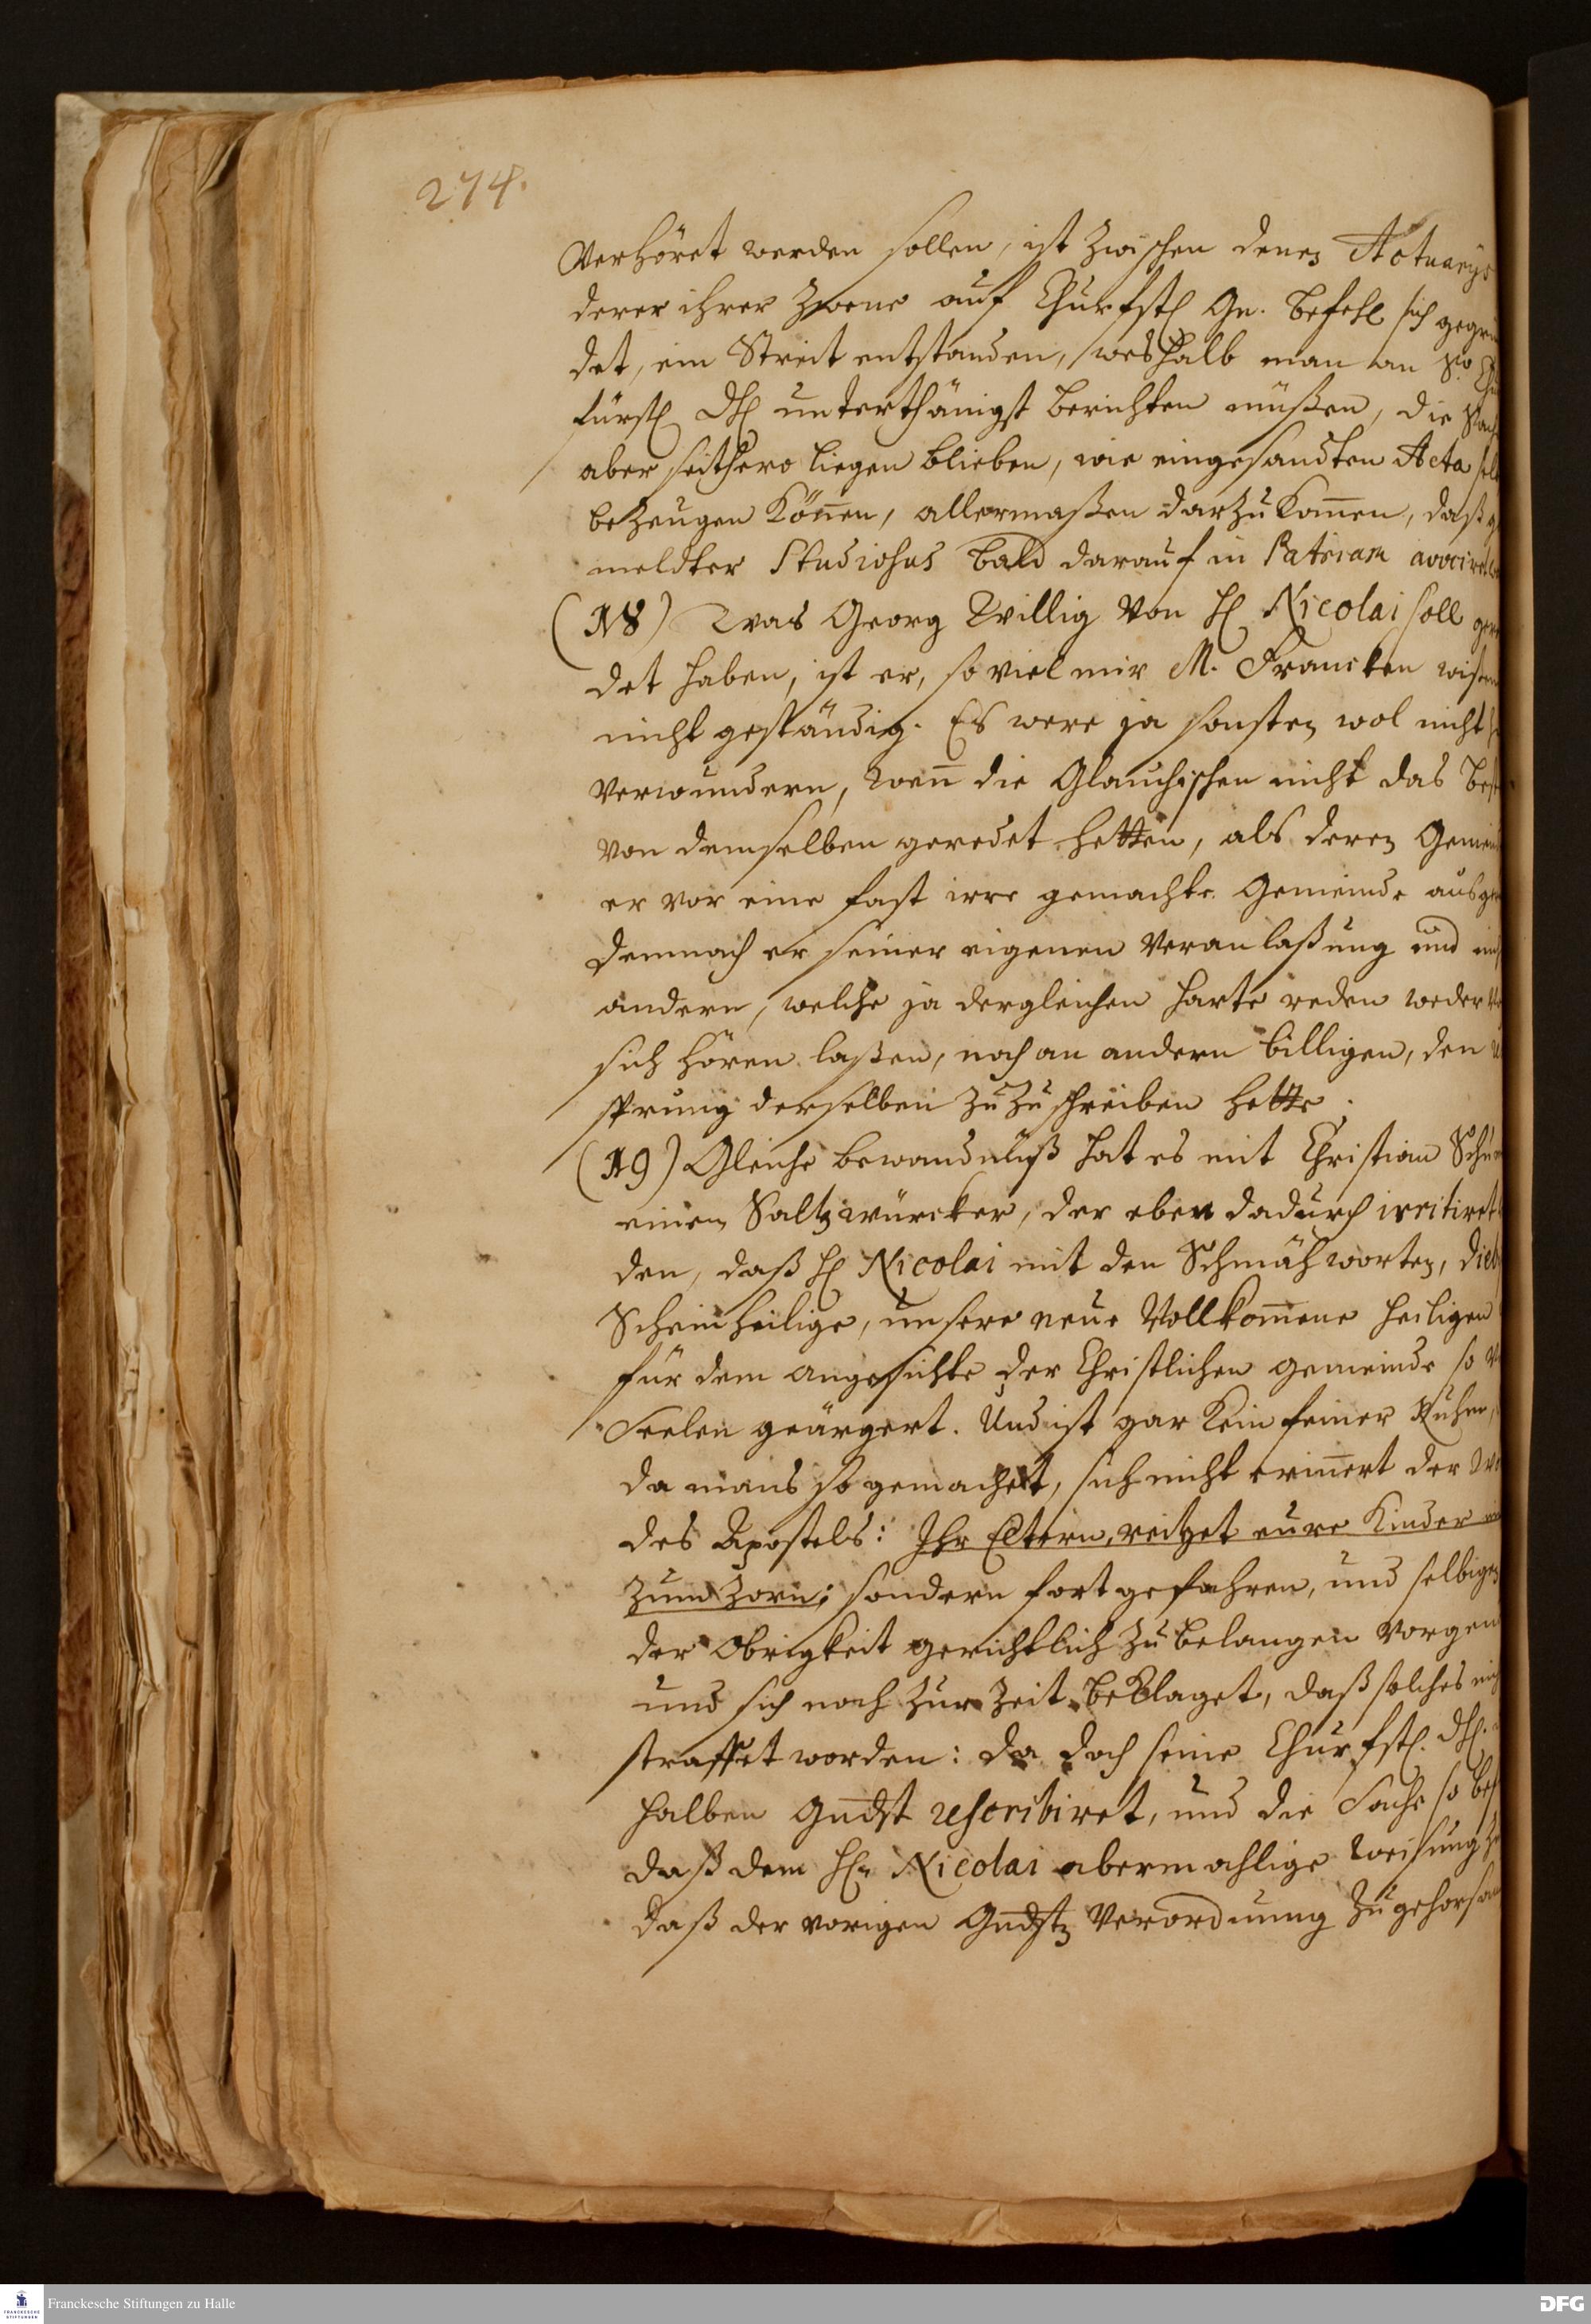 274.
Verhöret werden sollen, ist zwischen denen Actuarijs
derer ihrer zweene auf Churfstl Gn. Befehl sich gegrün
det, ein Streit entstanden, weshalb man an Se Chur
fürstl Dhl unterthänigst berichten müßen, die Sache
aber seithero liegen blieben, wie eingesandten Acta selb
bezeugen können, allermaßen darzu kommen, daß ge
meldter Studiosus bald darauf in Patriam avociret
(18) Was Georg Willig Von H Nicolai soll gere
det haben, ist er, so viel mir M. Francken wißen
nicht geständig. Es were ja sonsten wol nicht
verwundern, wenn die Glauchischen nicht das beste
von demselben geredet hetten, als deren Gemeinde
er vor eine fast irre gemachte Gemeinde ausge
demnach er seiner eigenen Veranlaßung und
andern, welche ja dergleichen harte reden weder
sich hören laßen, noch an andern billigen, den U
sprung derselben zuzuschreiben hette.
(19) Gleiche bewandnüß hat es mit Christian
einen Saltzwürcker, der eben dadurch irritiret
den, daß H Nicolai mit den Schmähworten, die
Scheinheilige, unsere neue Vollkommene heiligen
für dem angesichte der Christlichen gemeinde so
Seelen geärgert. Und ist gar kein feiner Ruhm,
da mans so gemachet, sich nicht erinnert der
des Apostels: Ihr Eltern, reitzet eure Kinder
zum Zorn; sondern fortgefahren, und selbigen
der Obrigkeit gerichtlich zu belangen vorgen
und sich noch zur Zeit beklaget, daß solches
straffet worden: da doch seine Churfstl. Dhl.
halben Gndst rescribiret, und die Sache so
daß dem Hn Nicolai abermahlige weisung
daß der vorigen Gndstn Verordnung zu gehorsam
Franckesche Stiftungen zu Halle
FRANCKESCHE STIFTUNGEN
DFG